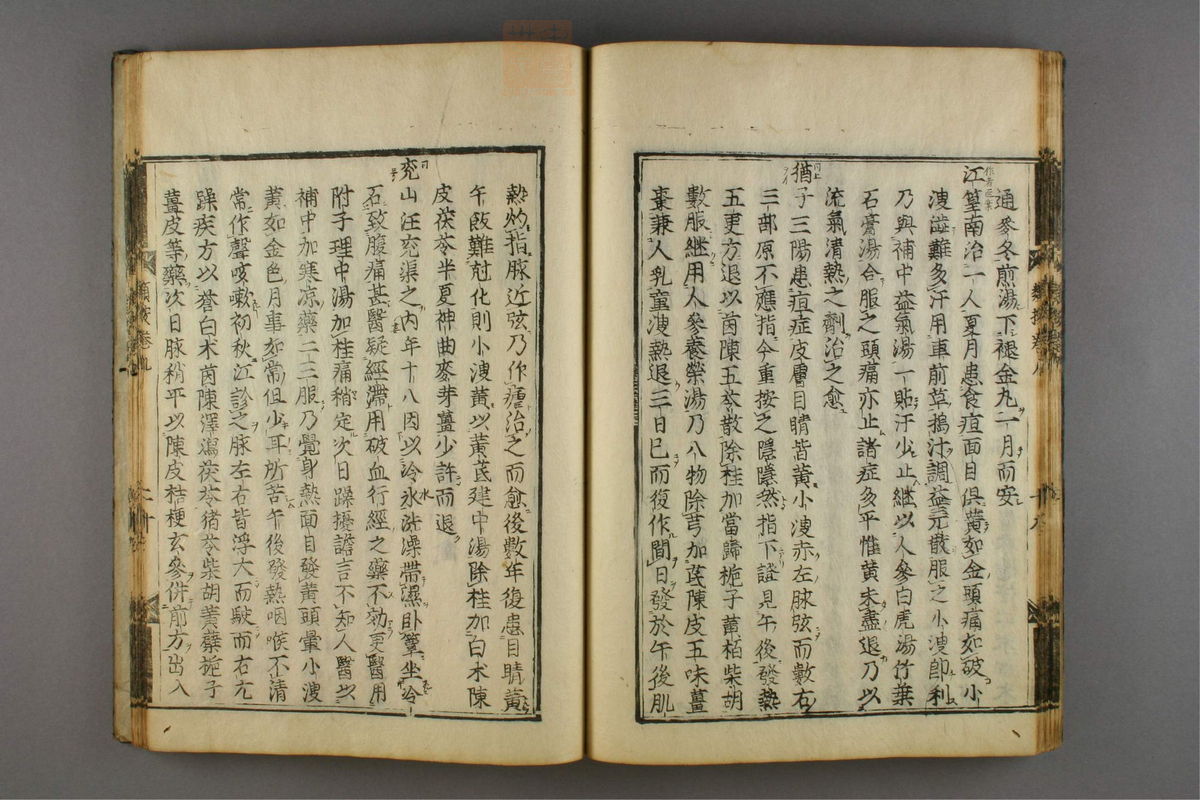 通參冬煎湯下褪金丸二月而安
江篁南治一人夏月患食疸面目俱黄如金頭痛如破小
溲澁難多汗用車前草搗汁調益元散服之小溲即利
乃與補中益氣湯一貼汗少止継以人參白虎湯竹葉
石膏湯合服之頭痛亦止諸症多平惟黄未盡退乃以
流氣清熱之劑治之愈
猶子三陽患疸症皮膚目睛皆黄小溲赤左脉弦而數右
三部原不應指今重按之隱隱然指下證見午後發熱
五更方退以茵陳五苓散除桂加當歸梔子黄栢柴胡
數服継用人參養榮湯乃八物除芎加芪陳皮五味薑
棗兼人乳童溲熱退三日已而復作間日發於午後肌
熱灼指脉近弦乃作瘧治之而愈後數年復患目睛黄
午飯難尅化則小溲黄以黄芪建中湯除桂加白术陳
皮茯苓半夏神曲麥芽薑少許而退
兖山汪兖渠之内年十八因以冷水洗澡帶濕卧簟坐冷
石致腹痛甚醫疑經滯用破血行經之藥不効更醫用
附子理中湯加桂痛稍定次日躁擾譫言不知人醫以
補中加寒凉藥二三服乃覺身熱面目發黄頭暈小溲
黄如金色月事如常但少耳所苦午後發熱咽喉不清
常作聲咳嗽初秋江診之脉左右皆浮大而駛而右尢
躁疾方以誉白术茵陳澤瀉茯苓猪苓柴胡黄蘗梔子
薑皮等藥次日脉稍平以陳皮桔梗玄參併前方出入